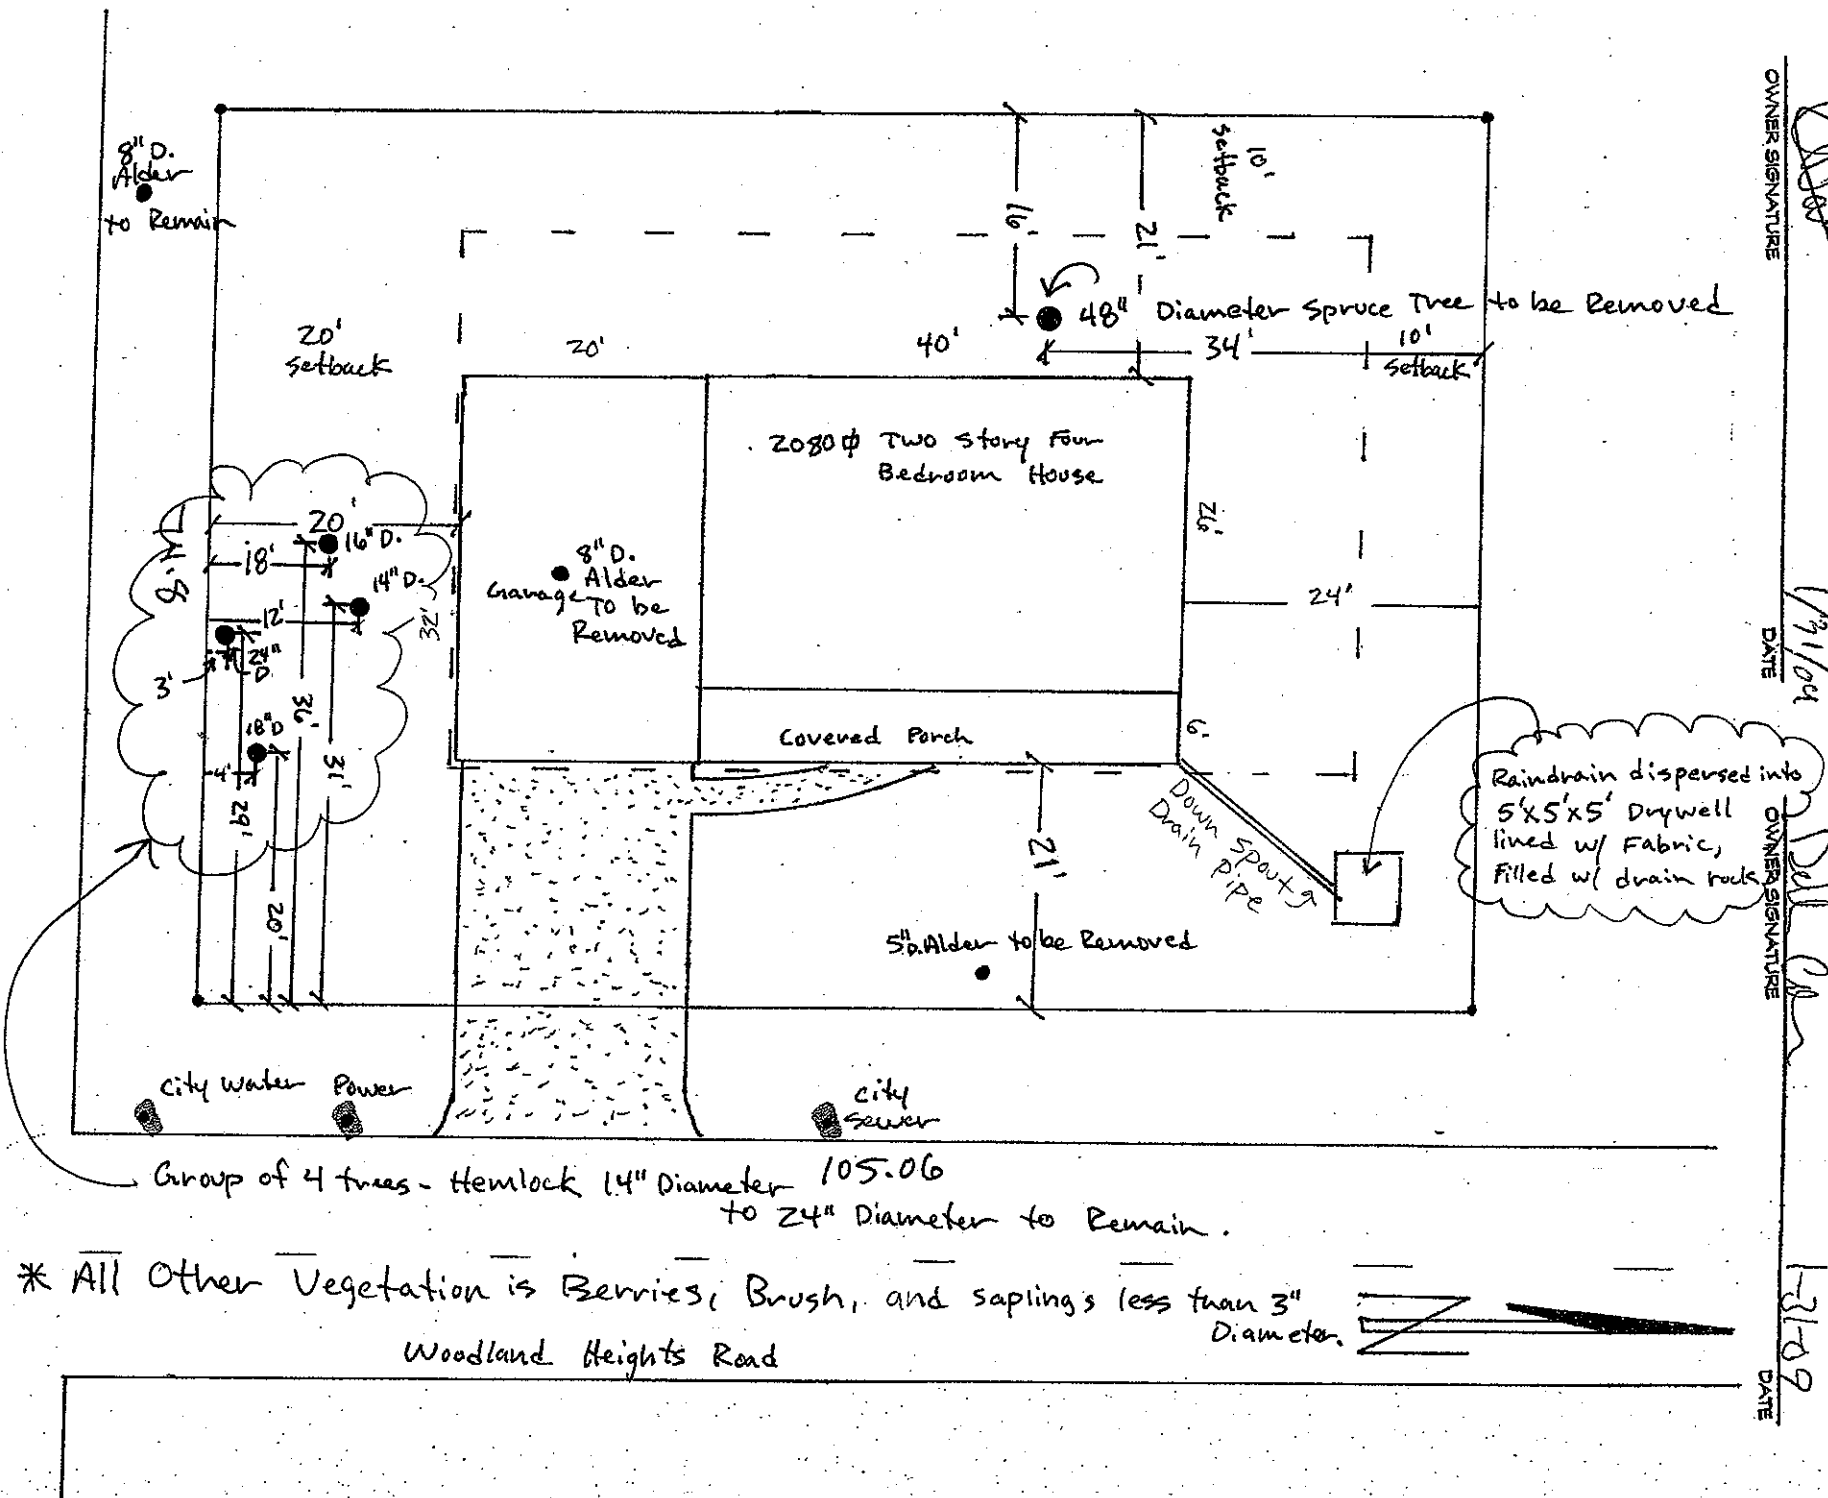 8"D.
Alder
to Remain
10'
setback
16'
21'
48" Diameter Spruce Tree to be Removed
20'
setback
20'
40'
34'
10'
setback
2080ϕ Two Story Four
Bedroom House
26'
20'
16"D.
18'
14"D.
12'
32'
24"
D
3'
18"D
4'
36'
31'
29'
20'
8"D.
Alder
To be
Removed
Garage
24'
Covered Porch
6'
21'
Down spout
Drain pipe
Raindrain dispersed into
5'x5'x5' Drywell
lined w/ Fabric,
Filled w/ drain rock
5"D. Alder to be Removed
City Water
Power
City
Sewer
Group of 4 trees - Hemlock 14" Diameter
to 24" Diameter to Remain.
105.06
* All Other Vegetation is Berries, Brush, and saplings less than 3"
Diameter.
Woodland Heights Road
N
OWNER SIGNATURE
1/31/09
DATE
OWNER SIGNATURE
1-31-09
DATE